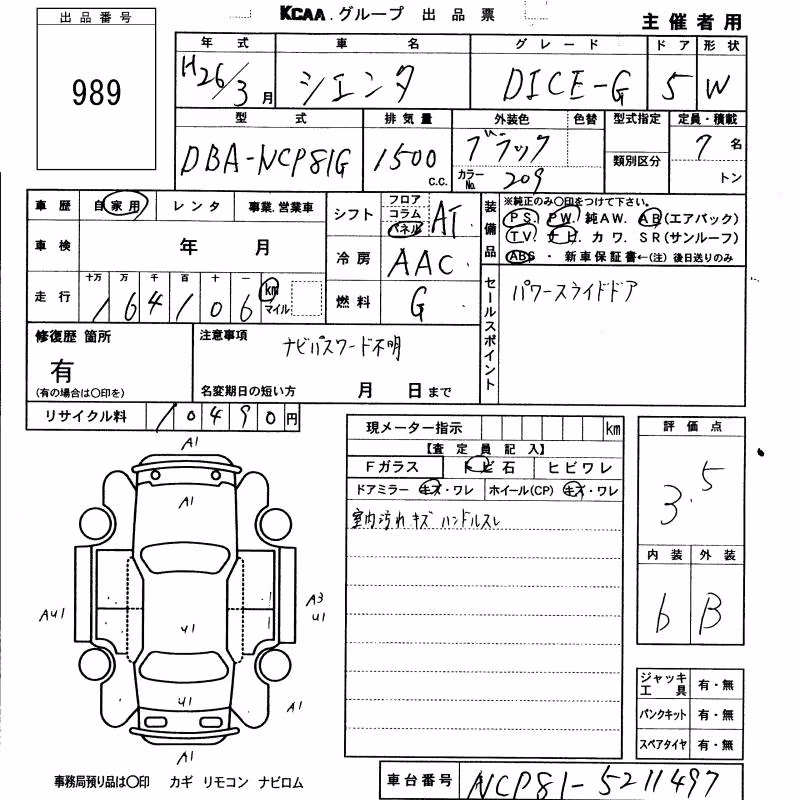 KCAA.グループ 出品票
主催者用
出品番号
989
年式 車名 グレード ドア 形状
H26/3月 シエンタ DICE-G 5 W
型式 排気量 外装色 色替 型式指定 定員・積載
DBA-NCP81G 1500 C.C. ブラック 7名
カラーNo. 209 類別区分 トン
車歴 自家用 レンタ 事業.営業車
シフト フロア コラム パネル AT
装備品 ※純正のみ〇印をつけて下さい。
PS. PW. 純AW. AB(エアバック)
TV. ナビ カワ. SR(サンルーフ)
ABS ・ 新車保証書←(注)後日送りのみ
車検 年 月
冷房 AAC
走行 十万 万 千 百 十 一
1 6 4 1 0 6 km マイル
燃料 G
セールスポイント パワースライドドア
修復歴 箇所
有
(有の場合は〇印を)
注意事項
ナビパスワード不明
名変期日の短い方 月 日まで
リサイクル料 1 0 4 9 0 円
現メーター指示 km
【査定員記入】
Fガラス トビ石 ヒビワレ
ドアミラー キズ・ワレ ホイール(CP) キズ・ワレ
室内汚れ キズ ハンドルスレ
評価点
3.5
内装 外装
b B
A1
A1
AU1
A3
U1
U1
U1
A1
A1
ジャッキ工具 有・無
パンクキット 有・無
スペアタイヤ 有・無
事務局預り品は〇印 カギ リモコン ナビロム
車台番号 NCP81-5211497